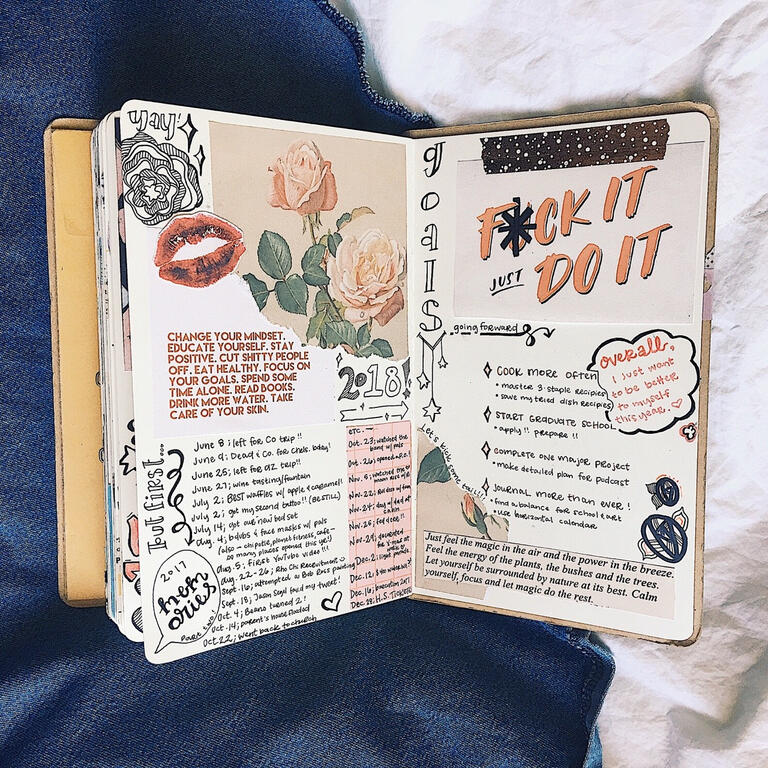 Yay!
CHANGE YOUR MINDSET.
EDUCATE YOURSELF. STAY
POSITIVE. CUT SHITTY PEOPLE
OFF. EAT HEALTHY. FOCUS ON
YOUR GOALS. SPEND SOME
TIME ALONE. READ BOOKS.
DRINK MORE WATER. TAKE
CARE OF YOUR SKIN.
2018
but first...
June 8; left for CO trip!!
June 9; Dead & Co. for Chels. bday!
June 25; left for AZ trip!!
June 27; wine tasting/fountain
July 2; BEST waffles w/ apple & caramel!
July 2; got my second tattoo!! (BE STILL)
July 14; got our new bed set
Aug. 4; bdubs & face masks w/ pals
(also - chipotle, planet fitness, cafe -
so many places opened this yr!)
Aug. 5; FIRST YouTube video!!!
Aug. 22-26; Rho Chi Recruitment
Sept. 16; attempted a Bob Ross painting
Sept. 18; Jason Segel faved my tweet!
Oct. 4; Beans turned 2!
Oct. 14; parent's house flooded
Oct. 22; went back to church
2017
mem
ories
part two!
etc. →
Oct. 23; watched the
band w/ pals
Oct. 26; opened
Nov. 5; watched
Nov. 22;
Nov. 24;
Nov. 25;
Nov. 29;
Dec. 2;
Dec. 12;
Dec. 16;
Dec. 28; H.S.
goals
F*CK IT
JUST DO IT
going forward
COOK MORE OFTEN
• master 3 staple recipes
• save my tried dish recipes
START GRADUATE SCHOOL
• apply!! prepare!!
COMPLETE ONE MAJOR PROJECT
• make detailed plan for podcast
JOURNAL MORE THAN EVER!
• find a balance for school & art
• use horizontal calendar
overall,
I just want
to be better
to myself
this year. ♡
Let's kick some tail!!!
Just feel the magic in the air and the power in the breeze.
Feel the energy of the plants, the bushes and the trees.
Let yourself be surrounded by nature at its best. Calm
yourself, focus and let magic do the rest.